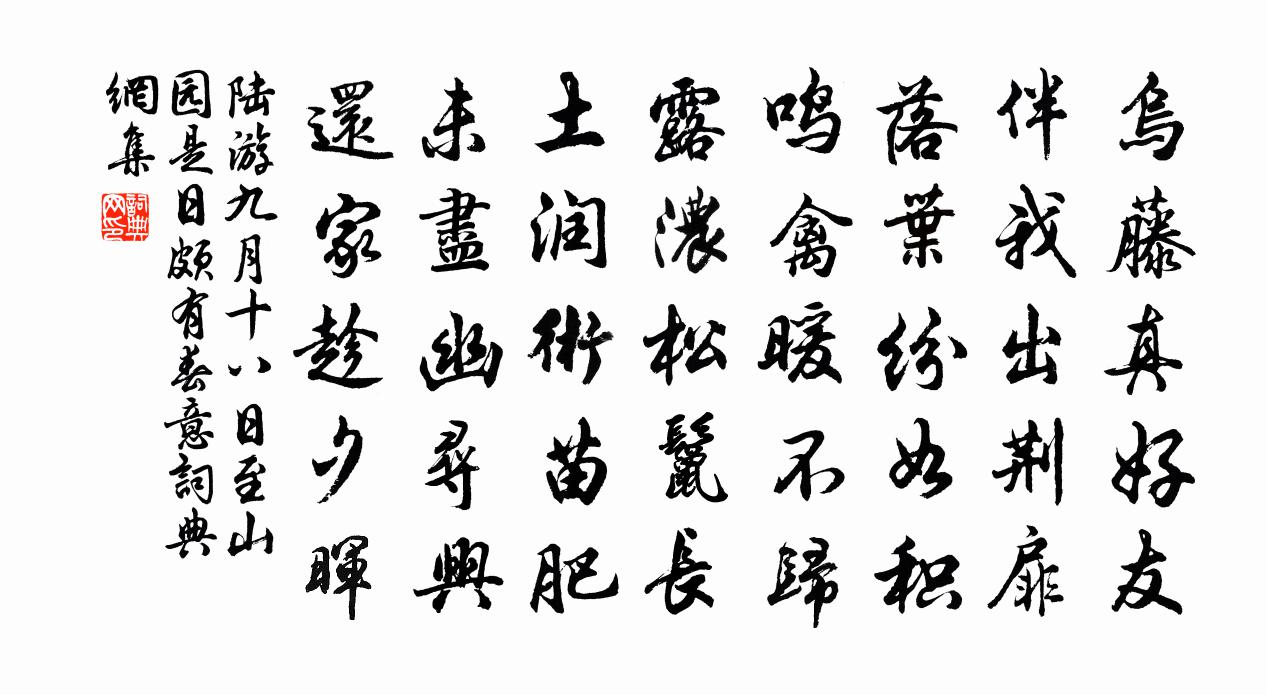 烏藤真好友
伴我出荆扉
落葉紛如积
鸣禽暖不歸
露濃松鬣長
土润術苗肥
未盡幽尋興
還家趁夕暉
陆游九月十八日至山
园是日頗有春意詞典
網集
詞典
网印